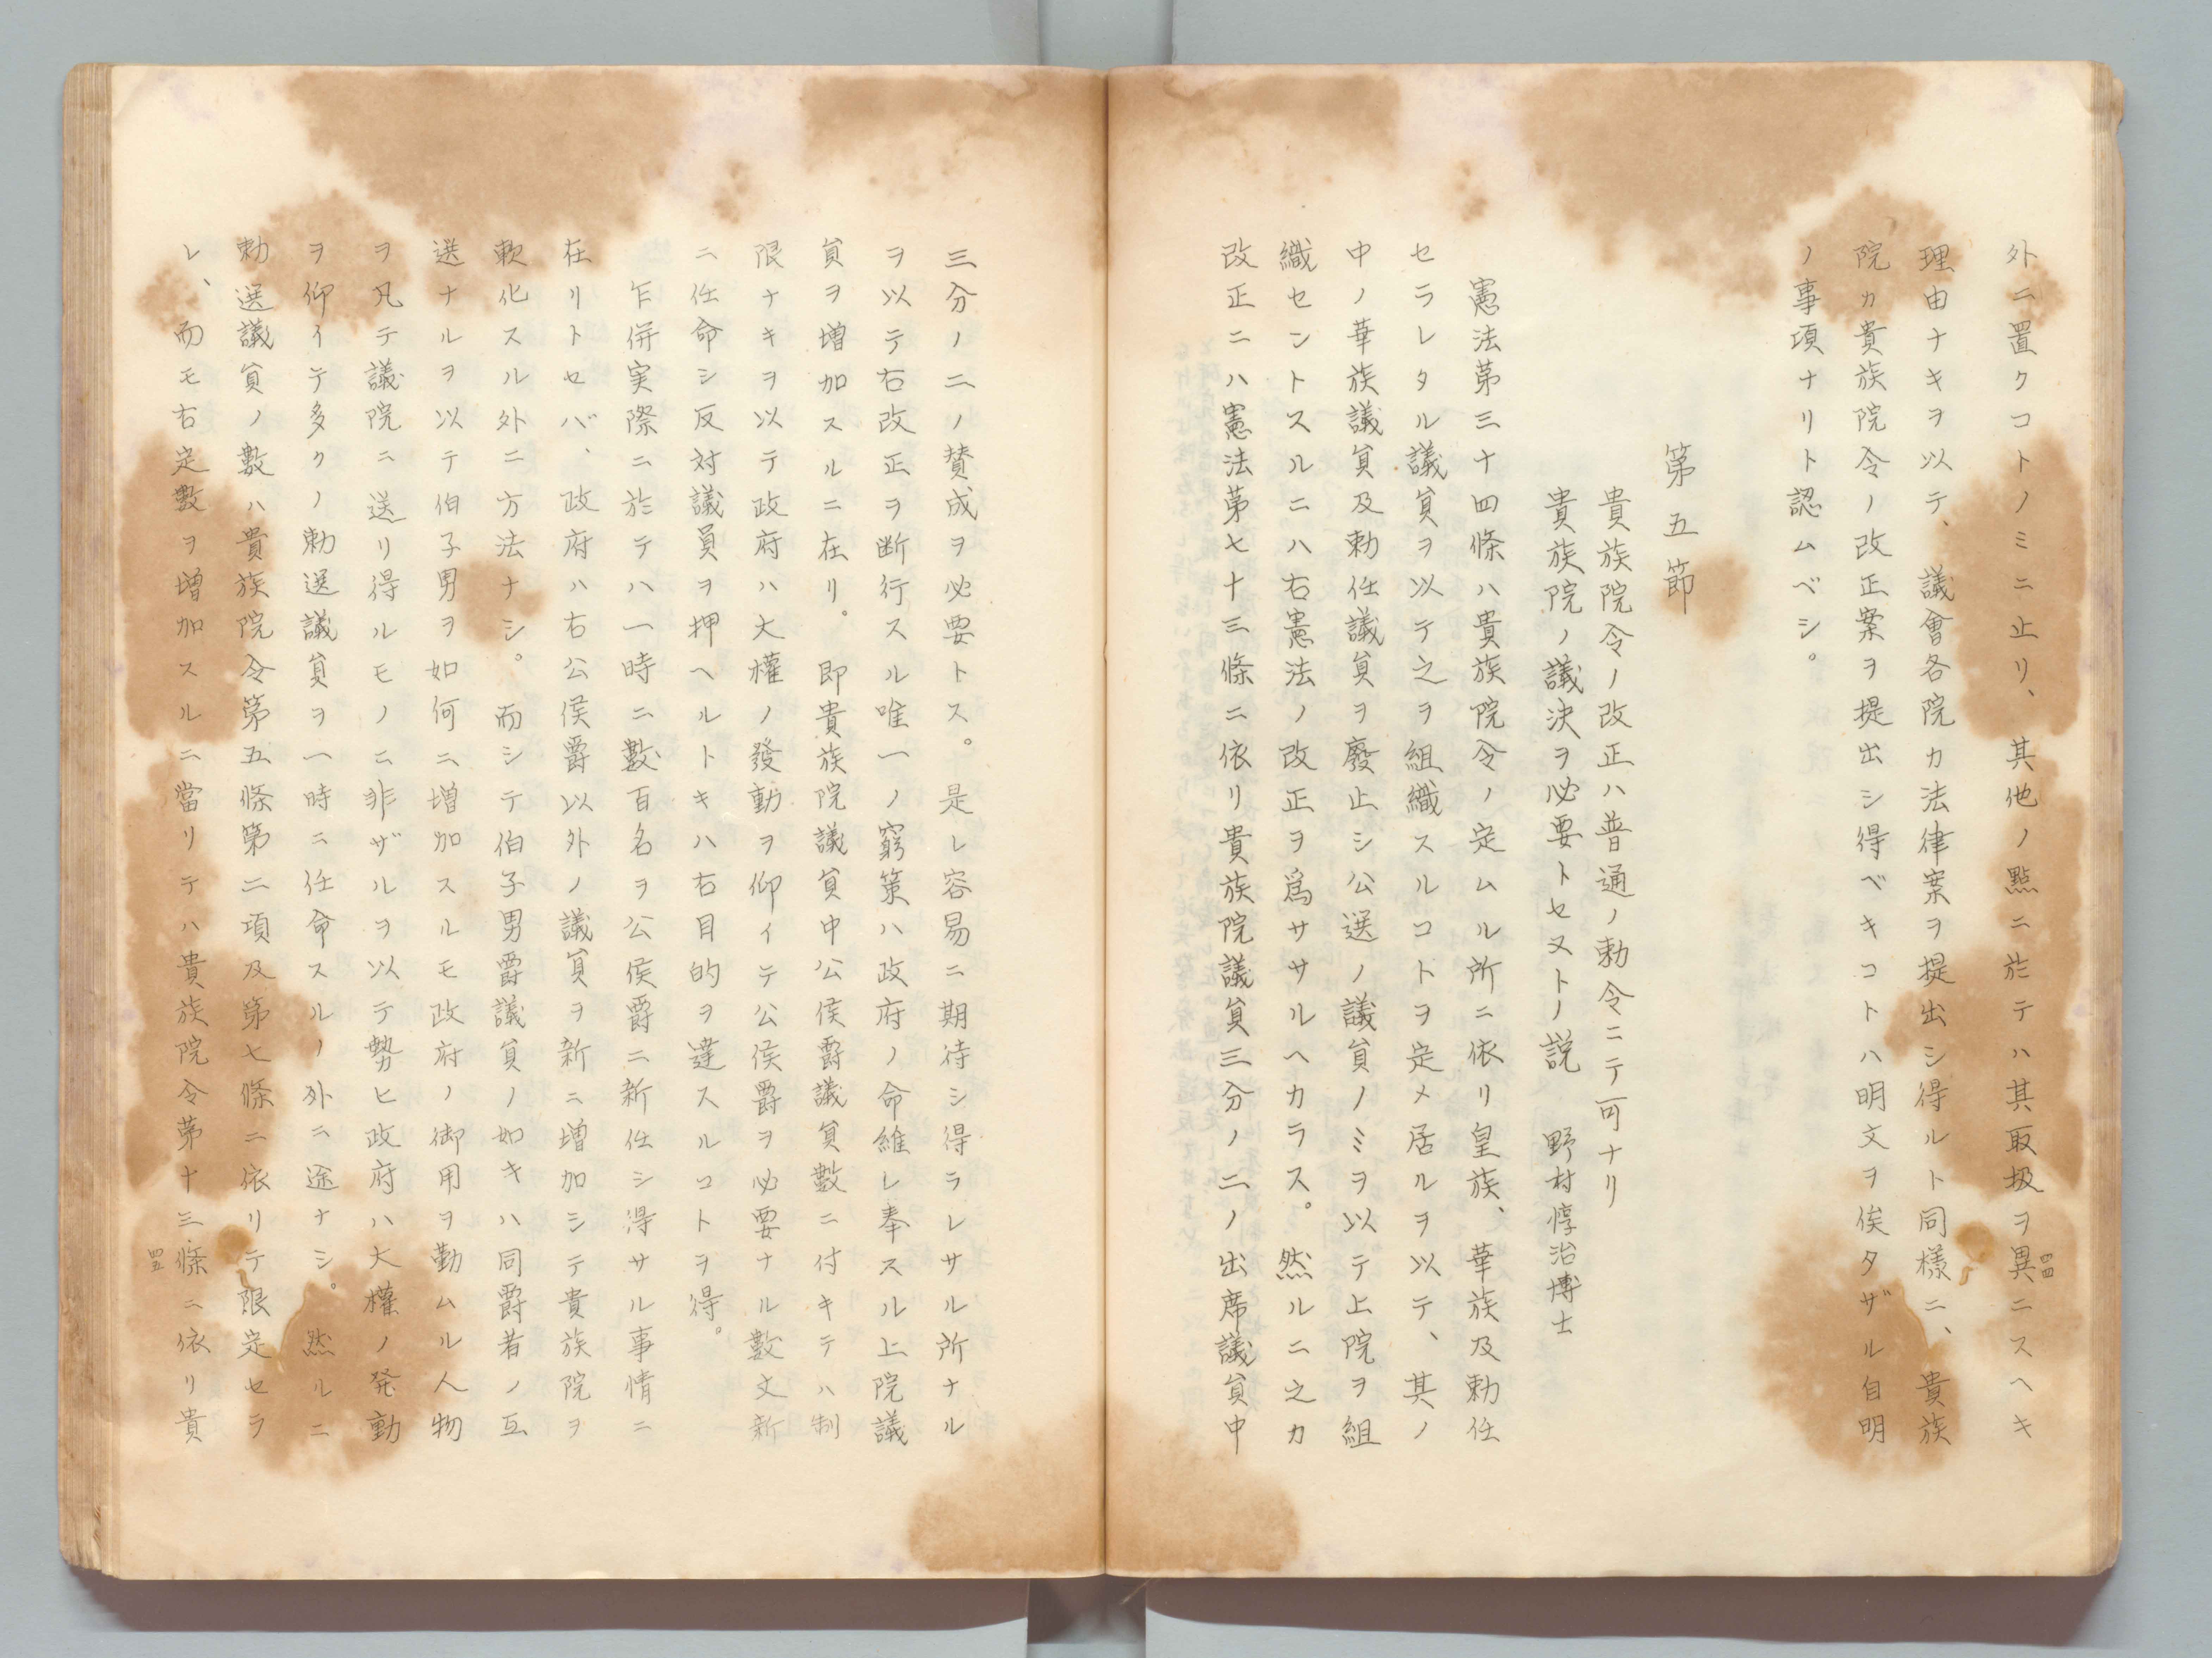 外ニ置クコトノミニ止リ、其他ノ點ニ於テハ其取扱ヲ異ニスヘキ
理由ナキヲ以テ、議會各院カ法律案ヲ提出シ得ルト同樣ニ、貴族
院カ貴族院令ノ改正案ヲ提出シ得ベキコトハ明文ヲ俟タザル自明
ノ事項ナリト認ムベシ。
第五節
貴族院令ノ改正ハ普通ノ勅令ニテ可ナリ
貴族院ノ議決ヲ必要トセヌトノ説　野村惇治博士
憲法第三十四條ハ貴族院令ノ定ムル所ニ依リ皇族、華族及勅任
セラレタル議員ヲ以テ之ヲ組織スルコトヲ定メ居ルヲ以テ、其ノ
中ノ華族議員及勅任議員ヲ廢止シ公選ノ議員ノミヲ以テ上院ヲ組
織セントスルニハ右憲法ノ改正ヲ爲サザルヘカラス。然ルニ之カ
改正ニハ憲法第七十三條ニ依リ貴族院議員三分ノ二ノ出席議員中
四四
三分ノ二ノ賛成ヲ必要トス。是レ容易ニ期待シ得ラレサル所ナル
ヲ以テ右改正ヲ断行スル唯一ノ窮策ハ政府ノ命維レ奉スル上院議
員ヲ増加スルニ在リ。即貴族院議員中公侯爵議員數ニ付キテハ制
限ナキヲ以テ政府ハ大權ノ發動ヲ仰イテ公侯爵ヲ必要ナル數丈新
ニ任命シ反対議員ヲ押ヘルトキハ右目的ヲ達スルコトヲ得。
乍併実際ニ於テハ一時ニ數百名ヲ公侯爵ニ新任シ得サル事情ニ
在リトセバ、政府ハ右公侯爵以外ノ議員ヲ新ニ増加シテ貴族院ヲ
軟化スル外ニ方法ナシ。而シテ伯子男爵議員ノ如キハ同爵者ノ互
選ナルヲ以テ伯子男ヲ如何ニ増加スルモ政府ノ御用ヲ勤ムル人物
ヲ凡テ議院ニ送リ得ルモノニ非ザルヲ以テ勢ヒ政府ハ大權ノ発動
ヲ仰イテ多クノ勅選議員ヲ一時ニ任命スルノ外ニ途ナシ。然ルニ
勅選議員ノ數ハ貴族院令第五條第二項及第七條ニ依リテ限定セラ
レ、而モ右定數ヲ増加スルニ當リテハ貴族院令第十三條ニ依リ貴
四五